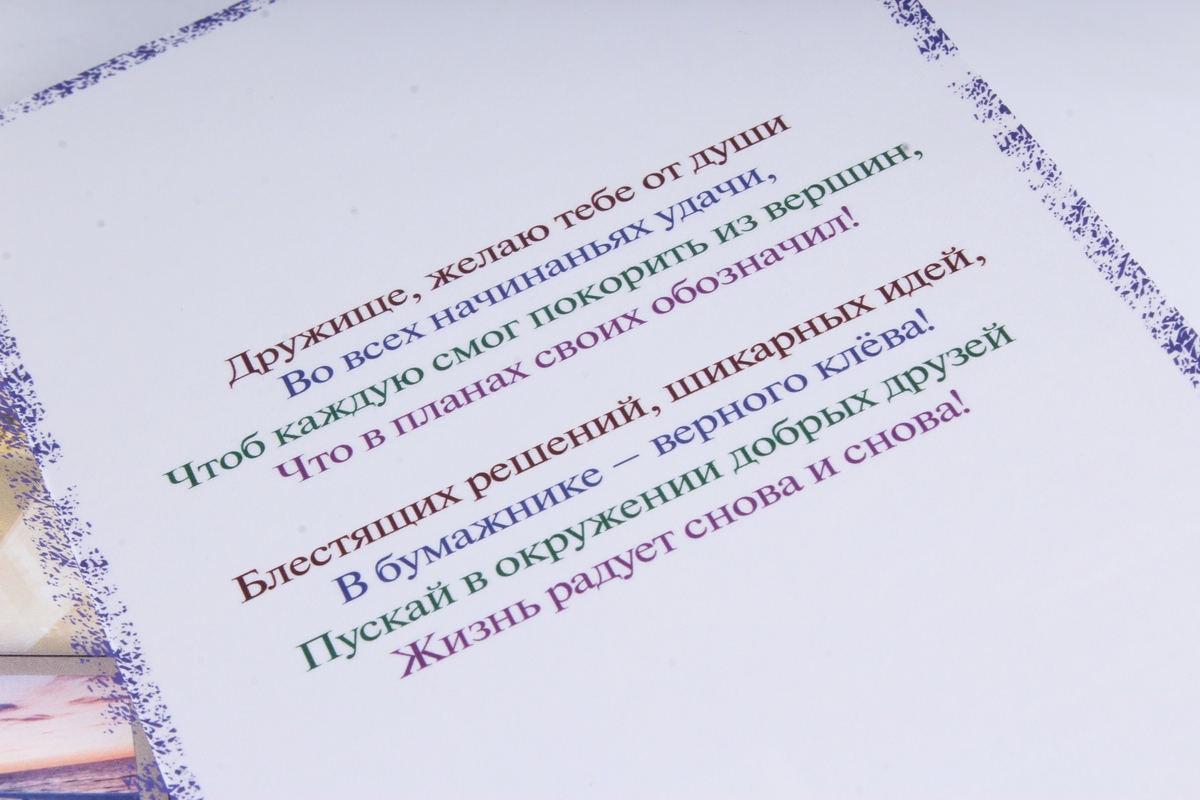 Дружище, желаю тебе от души
Во всех начинаньях удачи,
Чтоб каждую смог покорить из вершин,
Что в планах своих обозначил!
Блестящих решений, шикарных идей,
В бумажнике – верного клёва!
Пускай в окружении добрых друзей
Жизнь радует снова и снова!